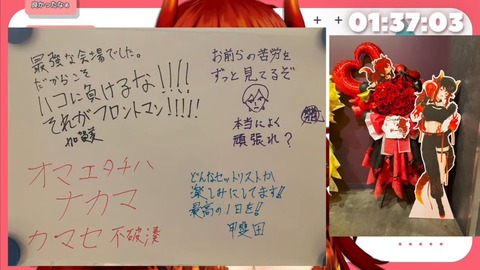 良かったなぁ
01:37:03
最強な会場でした。
だからこそ
ハコに負けるな!!!!
それがフロントマン!!!!!
加賀美
お前らの苦労を
ずっと見てるぞ
本当によく
頑張れ?
オマエタチハ
ナカマ
カマセ 不破湊
どんなセットリストか
楽しみにしてます!!
最高の1日を!!
甲斐田